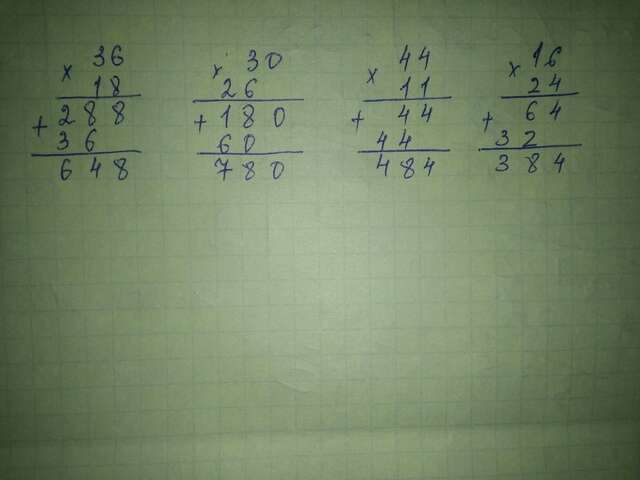 36 30 44 16
× 18 × 26 × 11 × 24
+ 288 + 180 + 44 + 64
36 60 44 32
648 780 484 384